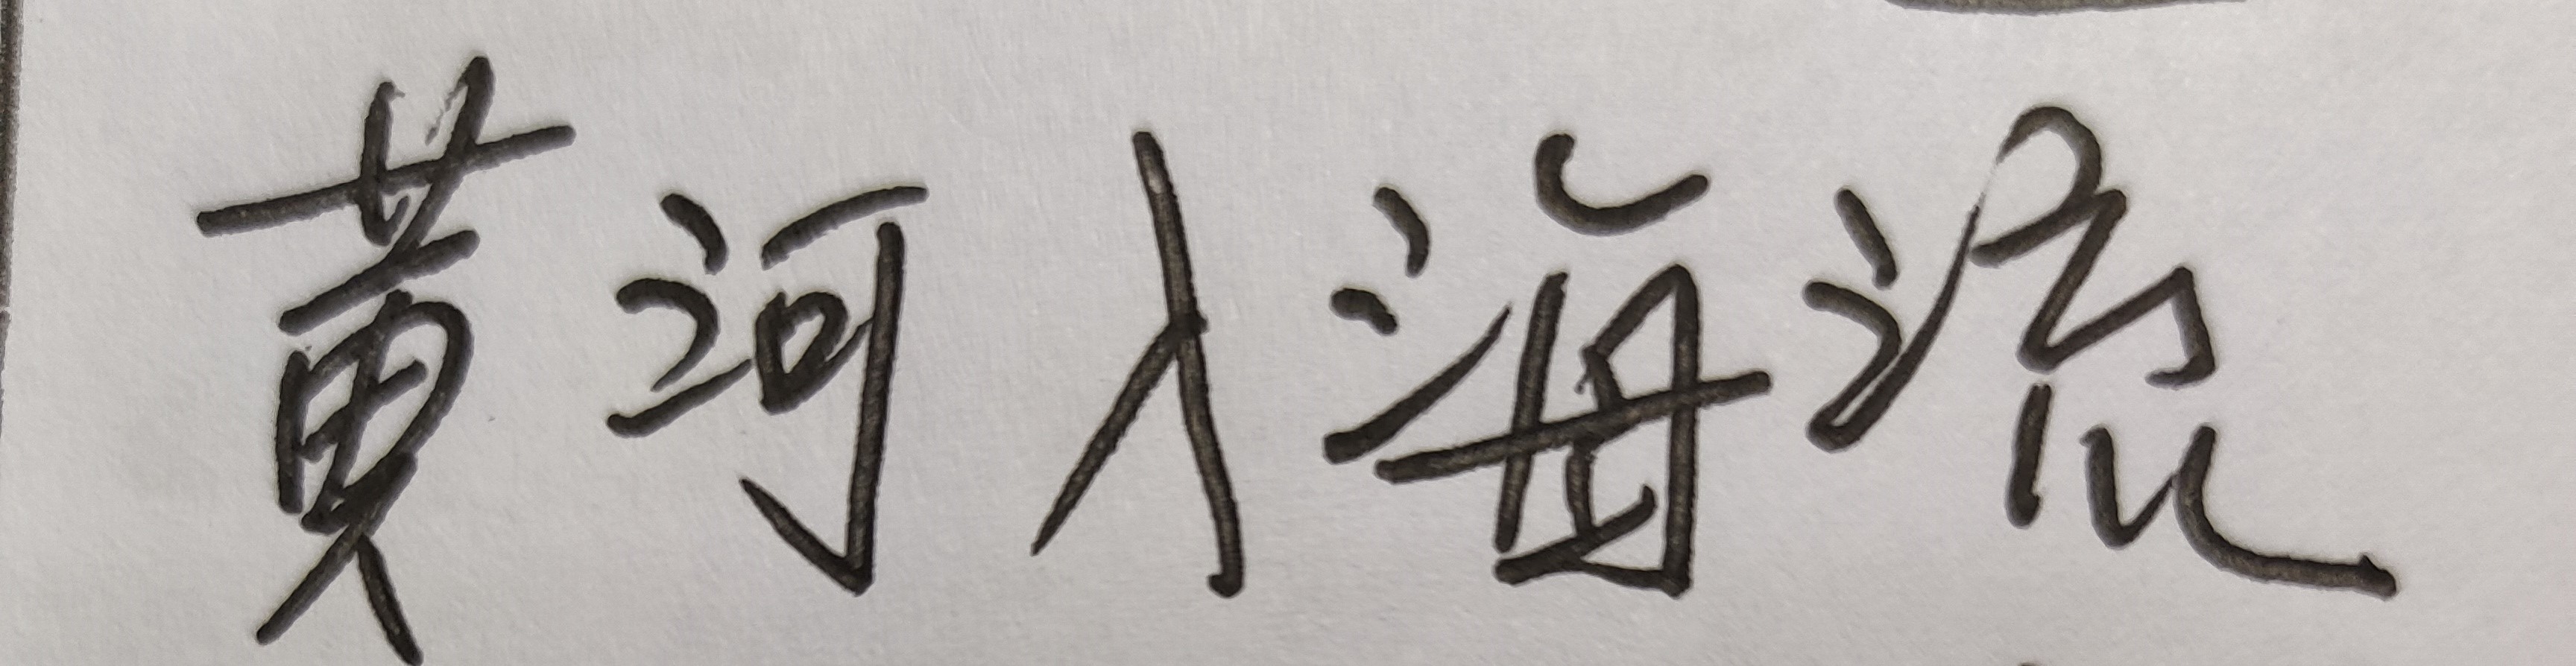 黄河入海流